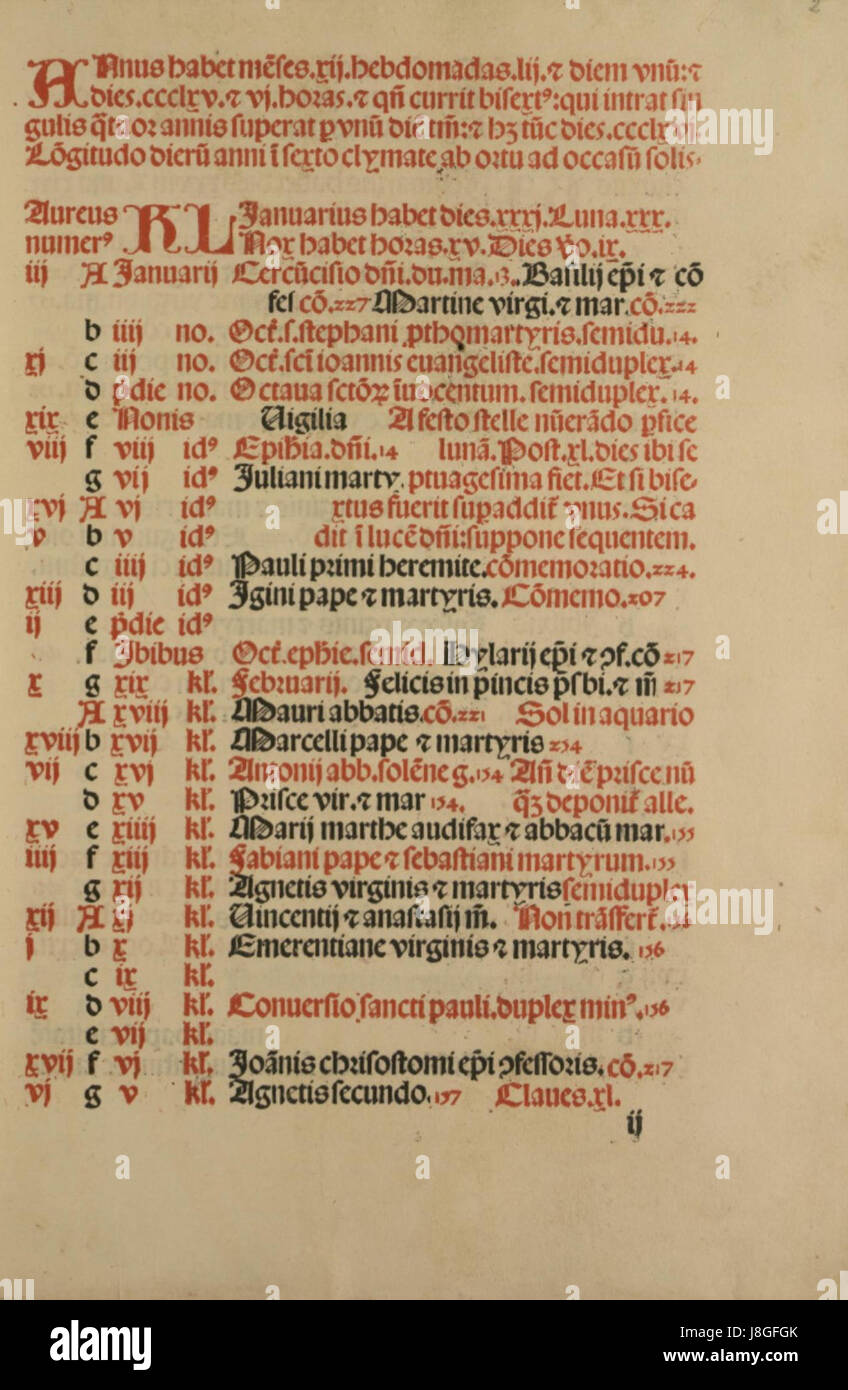 2
ANnus habet mẽses.xij.hebdomadas.lij.⁊ diem vnũ:⁊
dies.ccclxv.⁊ vj.horas.⁊ qñ currit bisextꝰ:qui intrat sin
gulis q̃tuor annis superat ꝑ vnũ diẽ tm̃:⁊ hꝫ tũc dies.ccclxvj.
Lõgitudo dierũ anni ĩ sexto clymate ab ortu ad occasũ solis.
Aureus KL Januarius habet dies.xxxj.Luna.xxx.
numerꝰ Nox habet horas.xv.Dies ṽo.ix.
iij A Januarij Cercũcisio dñi.du.ma.13.Basilij ep̃i ⁊ cõ
fes cõ.227 Martine virgi.⁊ mar.cõ.222
b iiij no. Oct̃.s.stephani ꝓthomartyris.semidu.14.
xj c iij no. Oct̃.sc̃i ioannis euangeliste.semiduplex.14
d p̃die no. Octaua sctõꝝ ĩnocentum.semiduplex.14.
xix e Nonis Uigilia A festo stelle nũerãdo ꝑfice
viij f viij idꝰ Epiph̃ia.dñi.14 lunã.Post.xl.dies ibi se
g vij idꝰ Juliani marty.ptuagesima fiet.Et si bise-
xvj A vj idꝰ xtus fuerit supaddit̃ vnus.Si ca
v b v idꝰ dit ĩ lucẽ dñi:suppone sequentem.
c iiij idꝰ Pauli primi heremite.cõmemoratio.224.
xiij d iij idꝰ Igini pape ⁊ martyris.Cõmemo.207
ij e p̃die idꝰ
f Jdibus Oct̃.eph̃ie.semid. Hylarij ep̃i ⁊ ꝯf.cõ 217
x g xix kl̃. Februarij. Felicis in p̃incis p̃sbi.⁊ m̃ 217
A xviij kl̃. Mauri abbatis.cõ.221 Sol in aquario
xviij b xvij kl̃. Marcelli pape ⁊ martyris 154
vij c xvj kl̃. Antonij abb.solẽne g.154 Añ diẽ prisce nũ
d xv kl̃. Prisce vir.⁊ mar 154. q̃ꝫ deponit̃ alle.
xv e xiiij kl̃. Marij marthe audifax ⁊ abbacũ mar.155
iiij f xiij kl̃. Fabiani pape ⁊ sebastiani martyrum.155
g xij kl̃. Agnetis virginis ⁊ martyris semiduplex
xij A xj kl̃. Uincentij ⁊ anastasij m̃. Non trãsfert̃.
j b x kl̃. Emerentiane virginis ⁊ martyris.156
c ix kl̃.
ix d viij kl̃. Conuersio sancti pauli.duplex minꝰ.156
e vij kl̃.
xvij f vj kl̃. Joãnis chrisostomi ep̃i ꝯfessoris.cõ.217
vj g v kl̃. Agnetis secundo.157 Claues.xl.
ij
a alamy
Image ID: J8GFGK
www.alamy.com